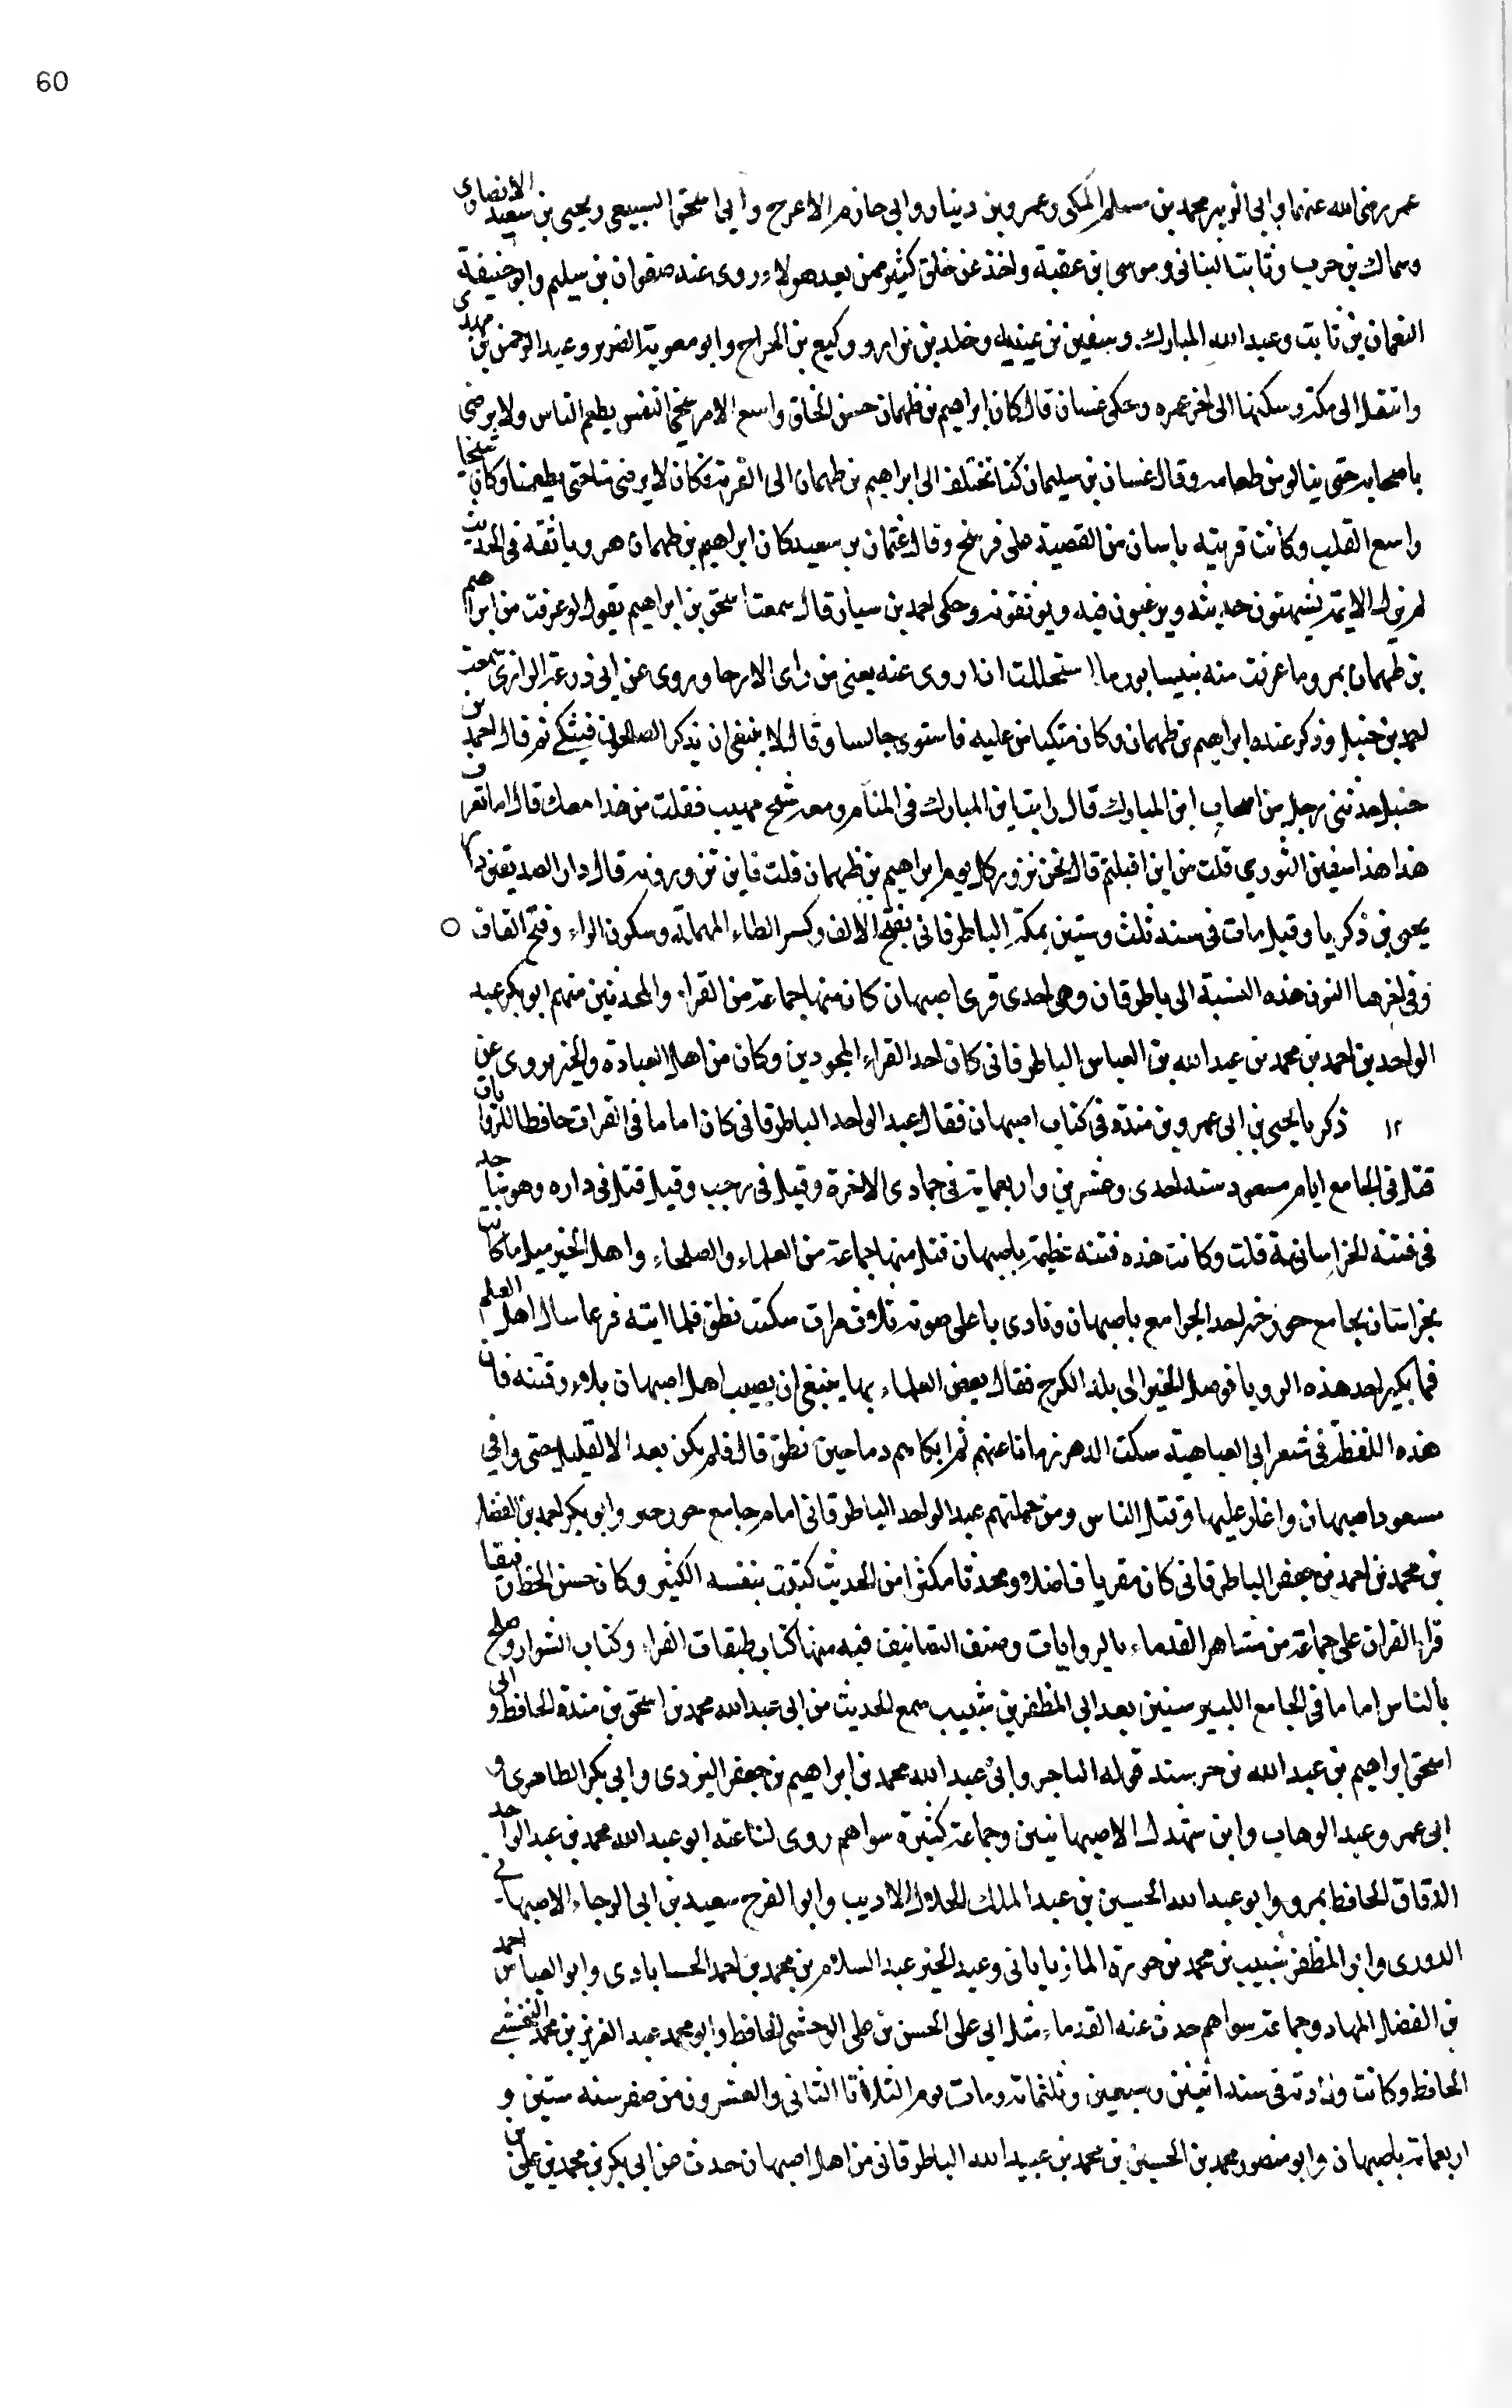 60
عمر رضى الله عنهما وابى الزبير محمد بن مسلم المكى وعمرو بن دينار وابى حازم الاعرج وابى اسحق السبيعى ويحيى بن سعيد الانصارى
وسماك بن حرب وثابت البنانى وموسى بن عقبة واخذ عن خلق كثير ممن بعد هولاء روى عنه صفوان بن سليم وابو حنيفة
النعمان بن ثابت وعبد الله المبارك وسفين بن عيينه وخلد بن نزار ووكيع بن الجراح وابو معوية الضرير وعبد الرحمن بن مهدى
وانتقل الى مكة وسكنها الى اخر عمره وحكى غسان قال كان ابراهيم بن طهمان حسن الخلق واسع الامر سخى النفس يطعم الناس ولا يرضى
باصحابه حتى ينالو من طعامه وقال غسان بن سليمان كنا نختلف الى ابراهيم بن طهمان الى القرية فكان لا يرضى منا حتى يطعمنا وكان شيخا
واسع القلب وكانت قريته باسان من القصبة على فرسخ وقال عثمان بن سعيد كان ابراهيم بن طهمان هرويا ثقة فى الحديث
لم يزل الايمة يشتهون حديثه ويرغبون فيه ويوثقونه وحكى احمد بن سيار قال سمعت اسحق بن ابراهيم يقول لو عرفت من ابراهيم
بن طهمان بمرو ما عرفت منه بنيسابور ما استحللت ان اروى عنه يعنى من راى الارجا وروى عن ابى زرعة الرازى سمعت
احمد بن حنبل وذكر عنده ابراهيم بن طهمان وكان متكيا من عليه فاستوى جالسا وقال لا ينبغى ان يذكر الصالحون فيتكى ثم قال احمد بن
حنبل حدثنى رجل من اصحاب ابن المبارك قال رايت ابن المبارك فى المنام ومعه شيخ مهيب فقلت من هذا معك قال اما تعرف
هذا هذا سفين الثورى قلت من اين اقبلتم قال نحن نزور كل يوم ابراهيم بن طهمان قلت فاين تزورونه قال دار الصديقين دار
يحيى بن زكريا وقيل مات فى سنه ثلث وستين بمكة الباطرقانى بفتح الالف وكسر الطاء المهملة وسكون الراء وفتح القاف
وفى اخرها النون هذه النسبة الى باطرقان وهى احدى قرى اصبهان كان منها جماعة من القراء والمحدثين منهم ابو بكر عبد
الواحد بن احمد بن محمد بن عبد الله بن العباس الباطرقانى كان احد القراء المجودين وكان من اهل العبادة والخير يروى عن
١٢ ذكر يا يحيى بن ابى عمرو بن مندة فى كتاب اصبهان فقال عبد الواحد الباطرقانى كان اماما فى القرات حافظا للروايات
قتل فى الجامع ايام مسعود سنه احدى وعشرين واربعماية فى جمادى الاخرة وقيل فى رجب وقيل قتل فى داره وهو
فى فتنه الخراسانية قلت وكانت هذه فتنه عظيمة باصبهان قتل منها جماعة من العلماء والصلحاء واهل الخير
بجامع احد الجوامع باصبهان ونادى باعلى صوته ثلاث مرات سكت نطق فلما انتبه فزعا سال اهل العلم
احد هذه الرويا فوصل الخبر الى بلد الكرج فقال بعض العلماء بها ينبغى ان يصيب اهل اصبهان بلاء وفتنه فان
هذه اللفظة فى شعر ابى العتاهية سكت الدهر زمانا عنهم ثم ابكاهم دما حين نطق قال فلم يكن بعد الا القليل حتى وافى
مسعود اصبهان واغار عليها وقتل الناس ومن جملتهم عبد الواحد الباطرقانى امام جامع وابو بكر احمد بن الفضل
بن محمد بن احمد بن جعفر الباطرقانى كان مقريا فاضلا ومحدثا مكثرا من الحديث كتبت بنفسه الكثير وكان حسن الخط
قرا القران على جماعة من مشاهر القدماء بالروايات وصنف التصانيف فيه منها كتاب طبقات القراء وكتاب الشواذ وصلى
بالناس اماما فى الجامع الكبير سنين بعد ابى المظفر بن شبيب سمع الحديث من ابى عبد الله محمد بن اسحق بن مندة الحافظ وابى
اسحق ابراهيم بن عبد الله بن خرشيد قوله التاجر وابى عبد الله محمد بن ابراهيم بن جعفر اليزدى وابى بكر الطاهرى و
ابى عمر وعبد الوهاب وابن شهدل الاصبهانيين وجماعة كثيرة سواهم روى لنا عنه ابو عبد الله محمد بن عبد الواحد
الدقاق الحافظ بمرو وابو عبد الله الحسين بن عبد الملك الخلال الاديب وابو الفرج سعيد بن ابى الرجاء الاصبهانى
الدورى وابو المظفر شبيب بن محمد بن وعبد الخير عبد السلام بن محمد بن احمد الحساباذى وابو العباس احمد
بن الفضل المهاد وجماعة سواهم حدث عنه القدماء مثل ابى على الحسن بن على الوخشى الحافظ وابو محمد عبد العزيز بن محمد النخشبى
الحافظ وكانت ولادته فى سنه اثنين وسبعين وثلثماية ومات يوم الثلاثا الثانى والعشرون من صفر سنه ستين و
اربعماية باصبهان وابو منصور محمد بن الحسين بن محمد بن عبيد الله الباطرقانى من اهل اصبهان حدث عن ابى بكر بن محمد بن على بن